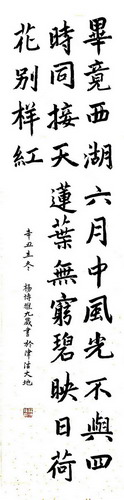 畢竟西湖六月中風光不與四
時同接天蓮葉無窮碧映日荷
花别樣紅
辛丑立冬 楊博雅九歲書於津沽大地